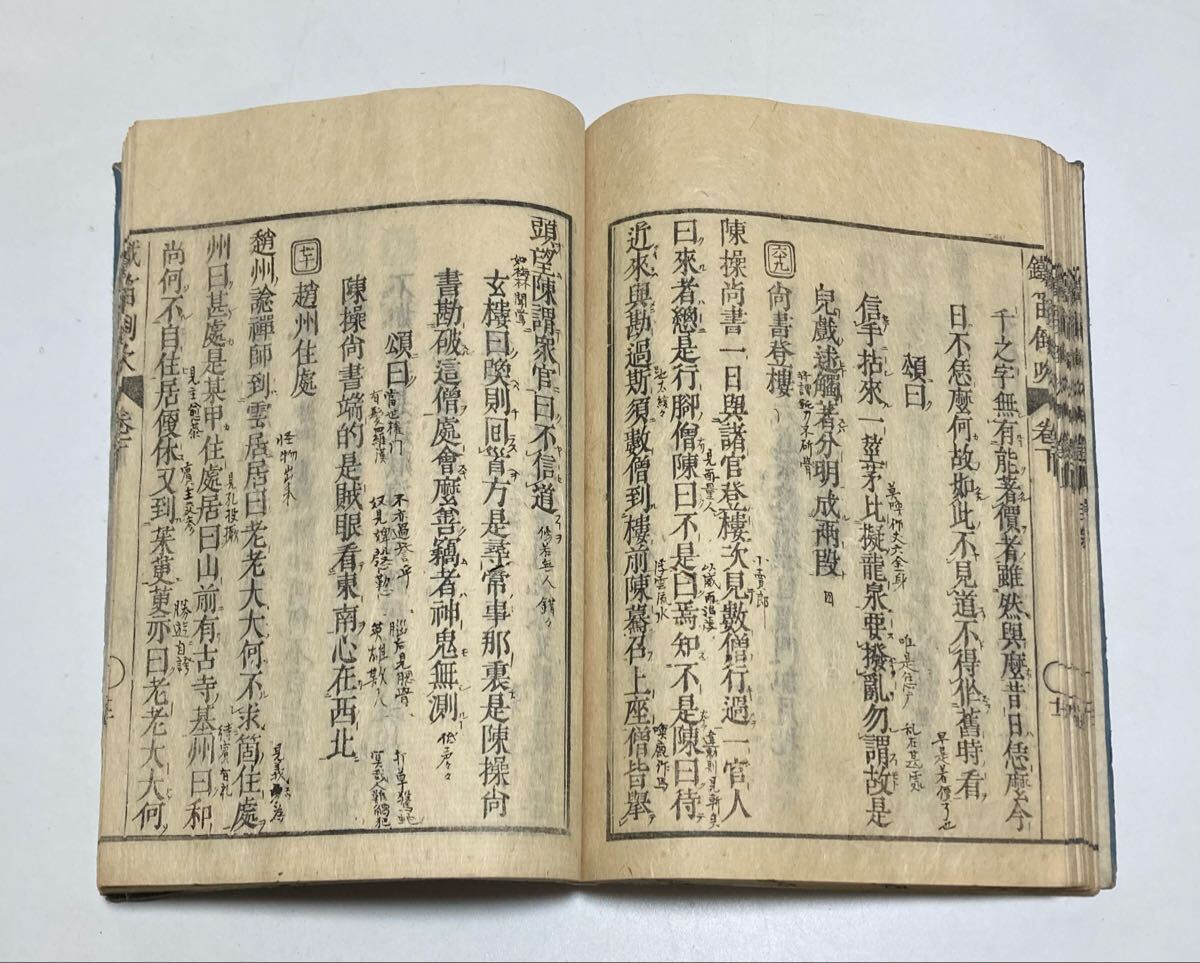 鐵笛倒吹 卷下
千之字無有能著價者雖然與麼昔日恁麼今
日不恁麼何故如此不見道不得坐舊時看
早是著價了也
頌曰
信手拈來一莖茅比擬龍泉要撥亂勿謂故是
兒戲述觸著分明成兩段
六九
尚書登樓
陳操尚書一日與諸官登樓次見數僧行過一官人
曰來者總是行腳僧陳曰不是曰焉知不是陳曰待
近來與勘過斯須數僧到樓前陳驀召上座僧皆舉
見面量人
浮雲流水
頭望陳謂眾官曰不信道
玄樓曰喚則回首方是尋常事那裏是陳操尚
書勘破這僧處會麼善竊者神鬼無測
頌曰
陳操尚書端的是賊眼看東南心在西北
有髮羅漢
英雄欺人
打草驚蛇
七十
趙州住處
怪物出來
趙州諗禪師到雲居居曰老老大大何不求箇住處
州曰甚處是某甲住處居曰山前有古寺基州曰和
尚何不自住居便休又到茱萸萸亦曰老老大大何
待賓有礼
勝遊自誇
卷下